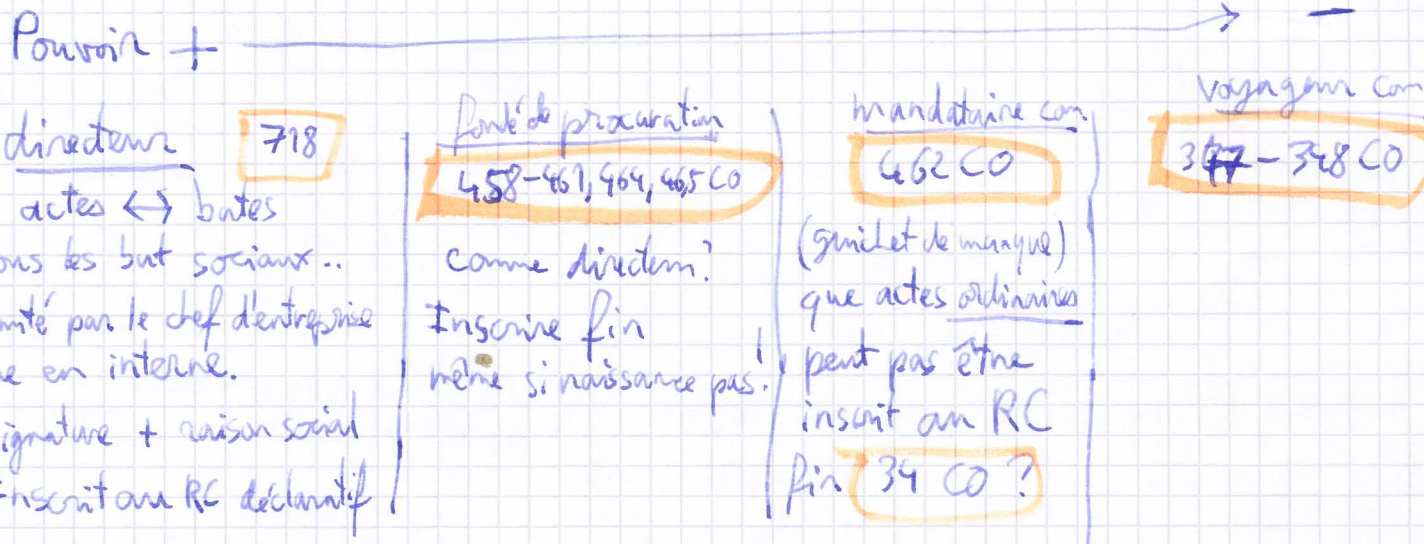 Pouvoir + → -
directeur 718
actes ↔ butes
ons les but sociaux..
mité par le chef d'entreprise
e en interne.
ignature + raison social
Inscrit au RC déclaratif
fondé de procuration
458-461, 464, 465 CO
comme directeur?
Inscrire fin
même si naissance pas!
mandataire com.
462 CO
(guichet de manque)
que actes ordinaires
peut pas être
inscrit au RC
fin 34 CO ?
voyageur com
347 - 348 CO